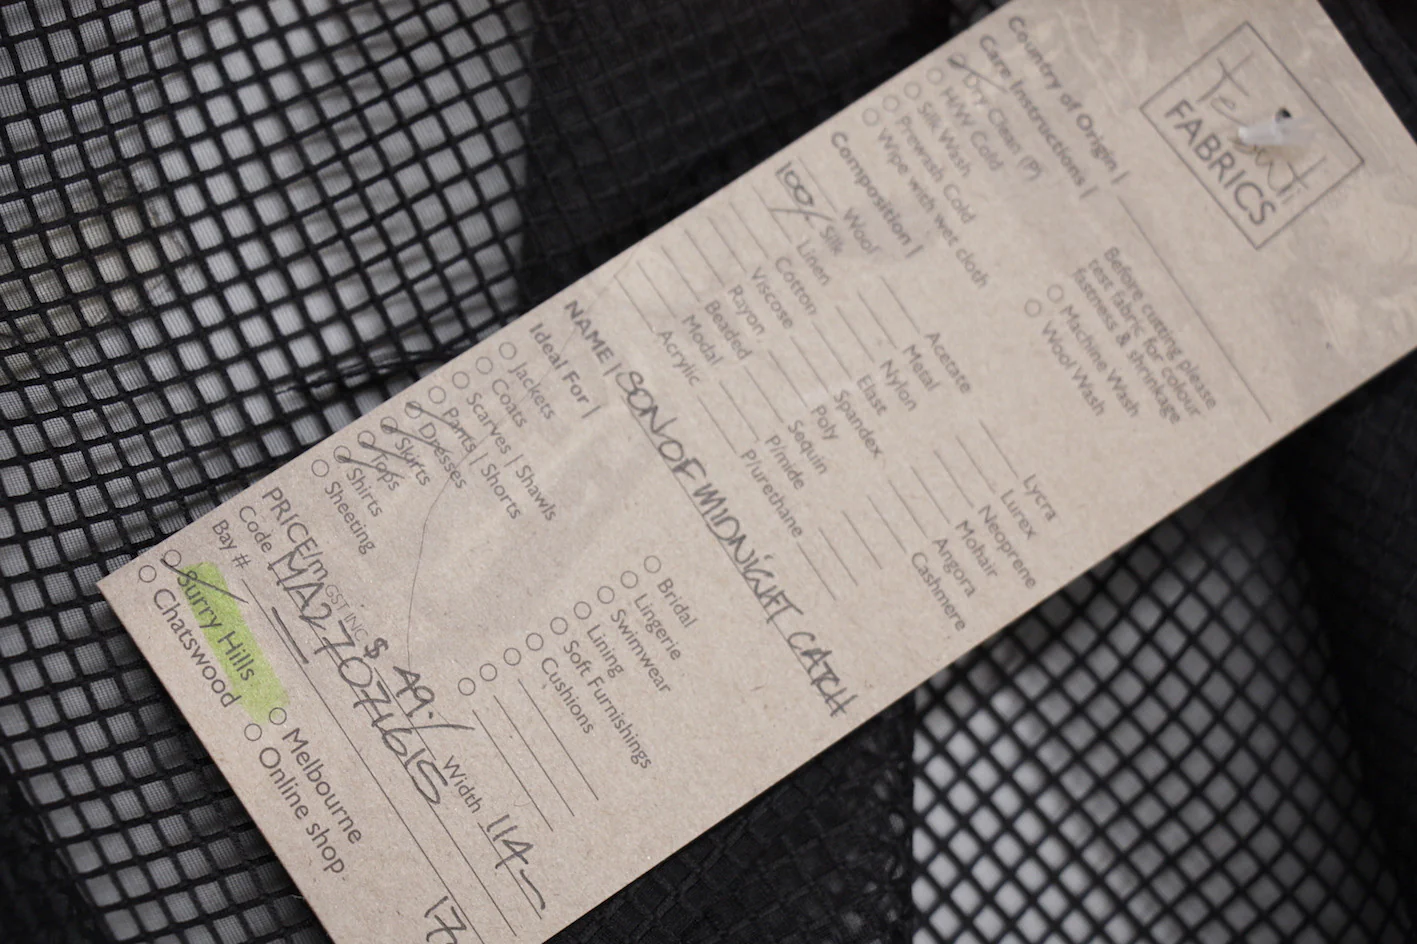 Tessuti
FABRICS
Country of Origin |
Care Instructions |
Dry Clean (P)
H/W Cold
Silk Wash
Prewash Cold
Wipe with wet cloth
Before cutting please
test fabric for colour
fastness & shrinkage
Machine Wash
Wool Wash
Composition |
Wool
100/ Silk
Linen
Cotton
Viscose
Rayon
Beaded
Modal
Acrylic
Acetate
Metal
Nylon
Elast
Spandex
Poly
Sequin
P/mide
P/urethane
Lycra
Lurex
Neoprene
Mohair
Angora
Cashmere
NAME | SON OF MIDNIGHT CATCH
Ideal For |
Jackets
Coats
Scarves | Shawls
Pants | Shorts
Dresses
Skirts
Tops
Shirts
Sheeting
Bridal
Lingerie
Swimwear
Lining
Soft Furnishings
Cushions
PRICE/m GST INC $ 49./ Width 114
Code
Bay #
Surry Hills
Chatswood
Melbourne
Online shop